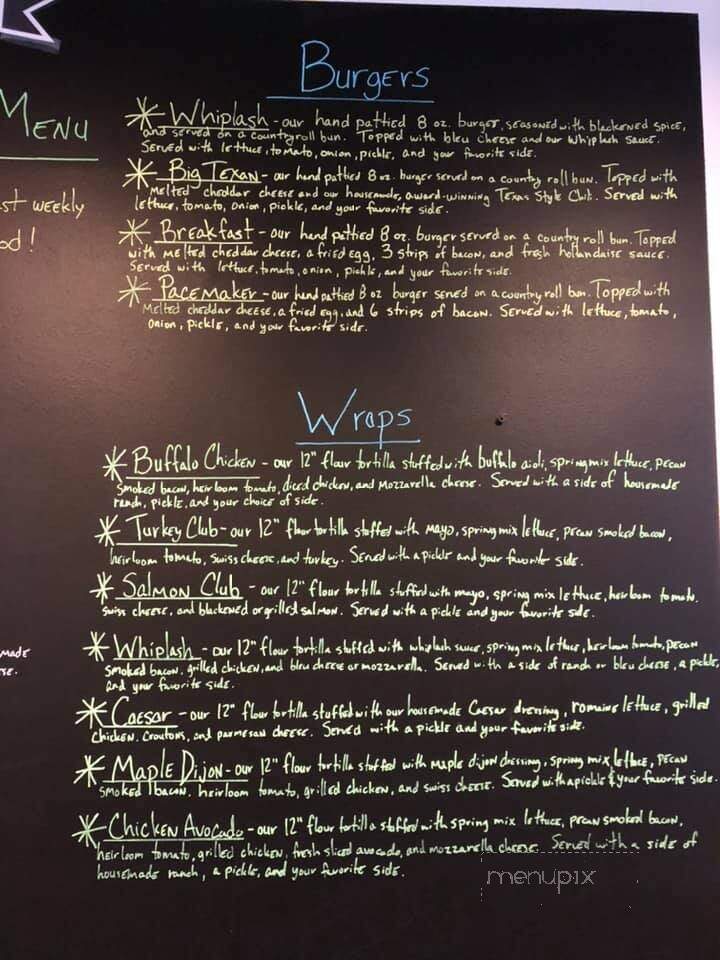 Menu
st weekly
od!
made
se.
Burgers
Whiplash - our hand pattied 8 oz. burger, seasoned with blackened spice,
and served on a country roll bun. Topped with bleu cheese and our Whiplash sauce.
Served with lettuce, tomato, onion, pickle, and your favorite side.
Big Texan - our hand pattied 8 oz. burger served on a country roll bun. Topped with
melted cheddar cheese and our housemade, award-winning Texas Style Chili. Served with
lettuce, tomato, onion, pickle, and your favorite side.
Breakfast - our hand pattied 8 oz. burger served on a country roll bun. Topped
with melted cheddar cheese, a fried egg, 3 strips of bacon, and fresh hollandaise sauce.
Served with lettuce, tomato, onion, pickle, and your favorite side.
Pacemaker - our hand pattied 8 oz burger served on a country roll bun. Topped with
melted cheddar cheese, a fried egg, and 6 strips of bacon. Served with lettuce, tomato,
onion, pickle, and your favorite side.
Wraps
Buffalo Chicken - our 12" flour tortilla stuffed with buffalo aioli, spring mix lettuce, pecan
smoked bacon, heirloom tomato, diced chicken, and mozzarella cheese. Served with a side of housemade
ranch, pickle, and your choice of side.
Turkey Club - our 12" flour tortilla stuffed with mayo, spring mix lettuce, pecan smoked bacon,
heirloom tomato, swiss cheese, and turkey. Served with a pickle and your favorite side.
Salmon Club - our 12" flour tortilla stuffed with mayo, spring mix lettuce, heirloom tomato,
swiss cheese, and blackened or grilled salmon. Served with a pickle and your favorite side.
Whiplash - our 12" flour tortilla stuffed with whiplash sauce, spring mix lettuce, heirloom tomato, pecan
smoked bacon, grilled chicken, and bleu cheese or mozzarella. Served with a side of ranch or bleu cheese, a pickle,
and your favorite side.
Caesar - our 12" flour tortilla stuffed with our housemade Caesar dressing, romaine lettuce, grilled
chicken, croutons, and parmesan cheese. Served with a pickle and your favorite side.
Maple Dijon - our 12" flour tortilla stuffed with maple dijon dressing, spring mix lettuce, pecan
smoked bacon, heirloom tomato, grilled chicken, and swiss cheese. Served with a pickle & your favorite side.
Chicken Avocado - our 12" flour tortilla stuffed with spring mix lettuce, pecan smoked bacon,
heirloom tomato, grilled chicken, fresh sliced avocado, and mozzarella cheese. Served with a side of
housemade ranch, a pickle, and your favorite side.
menupix